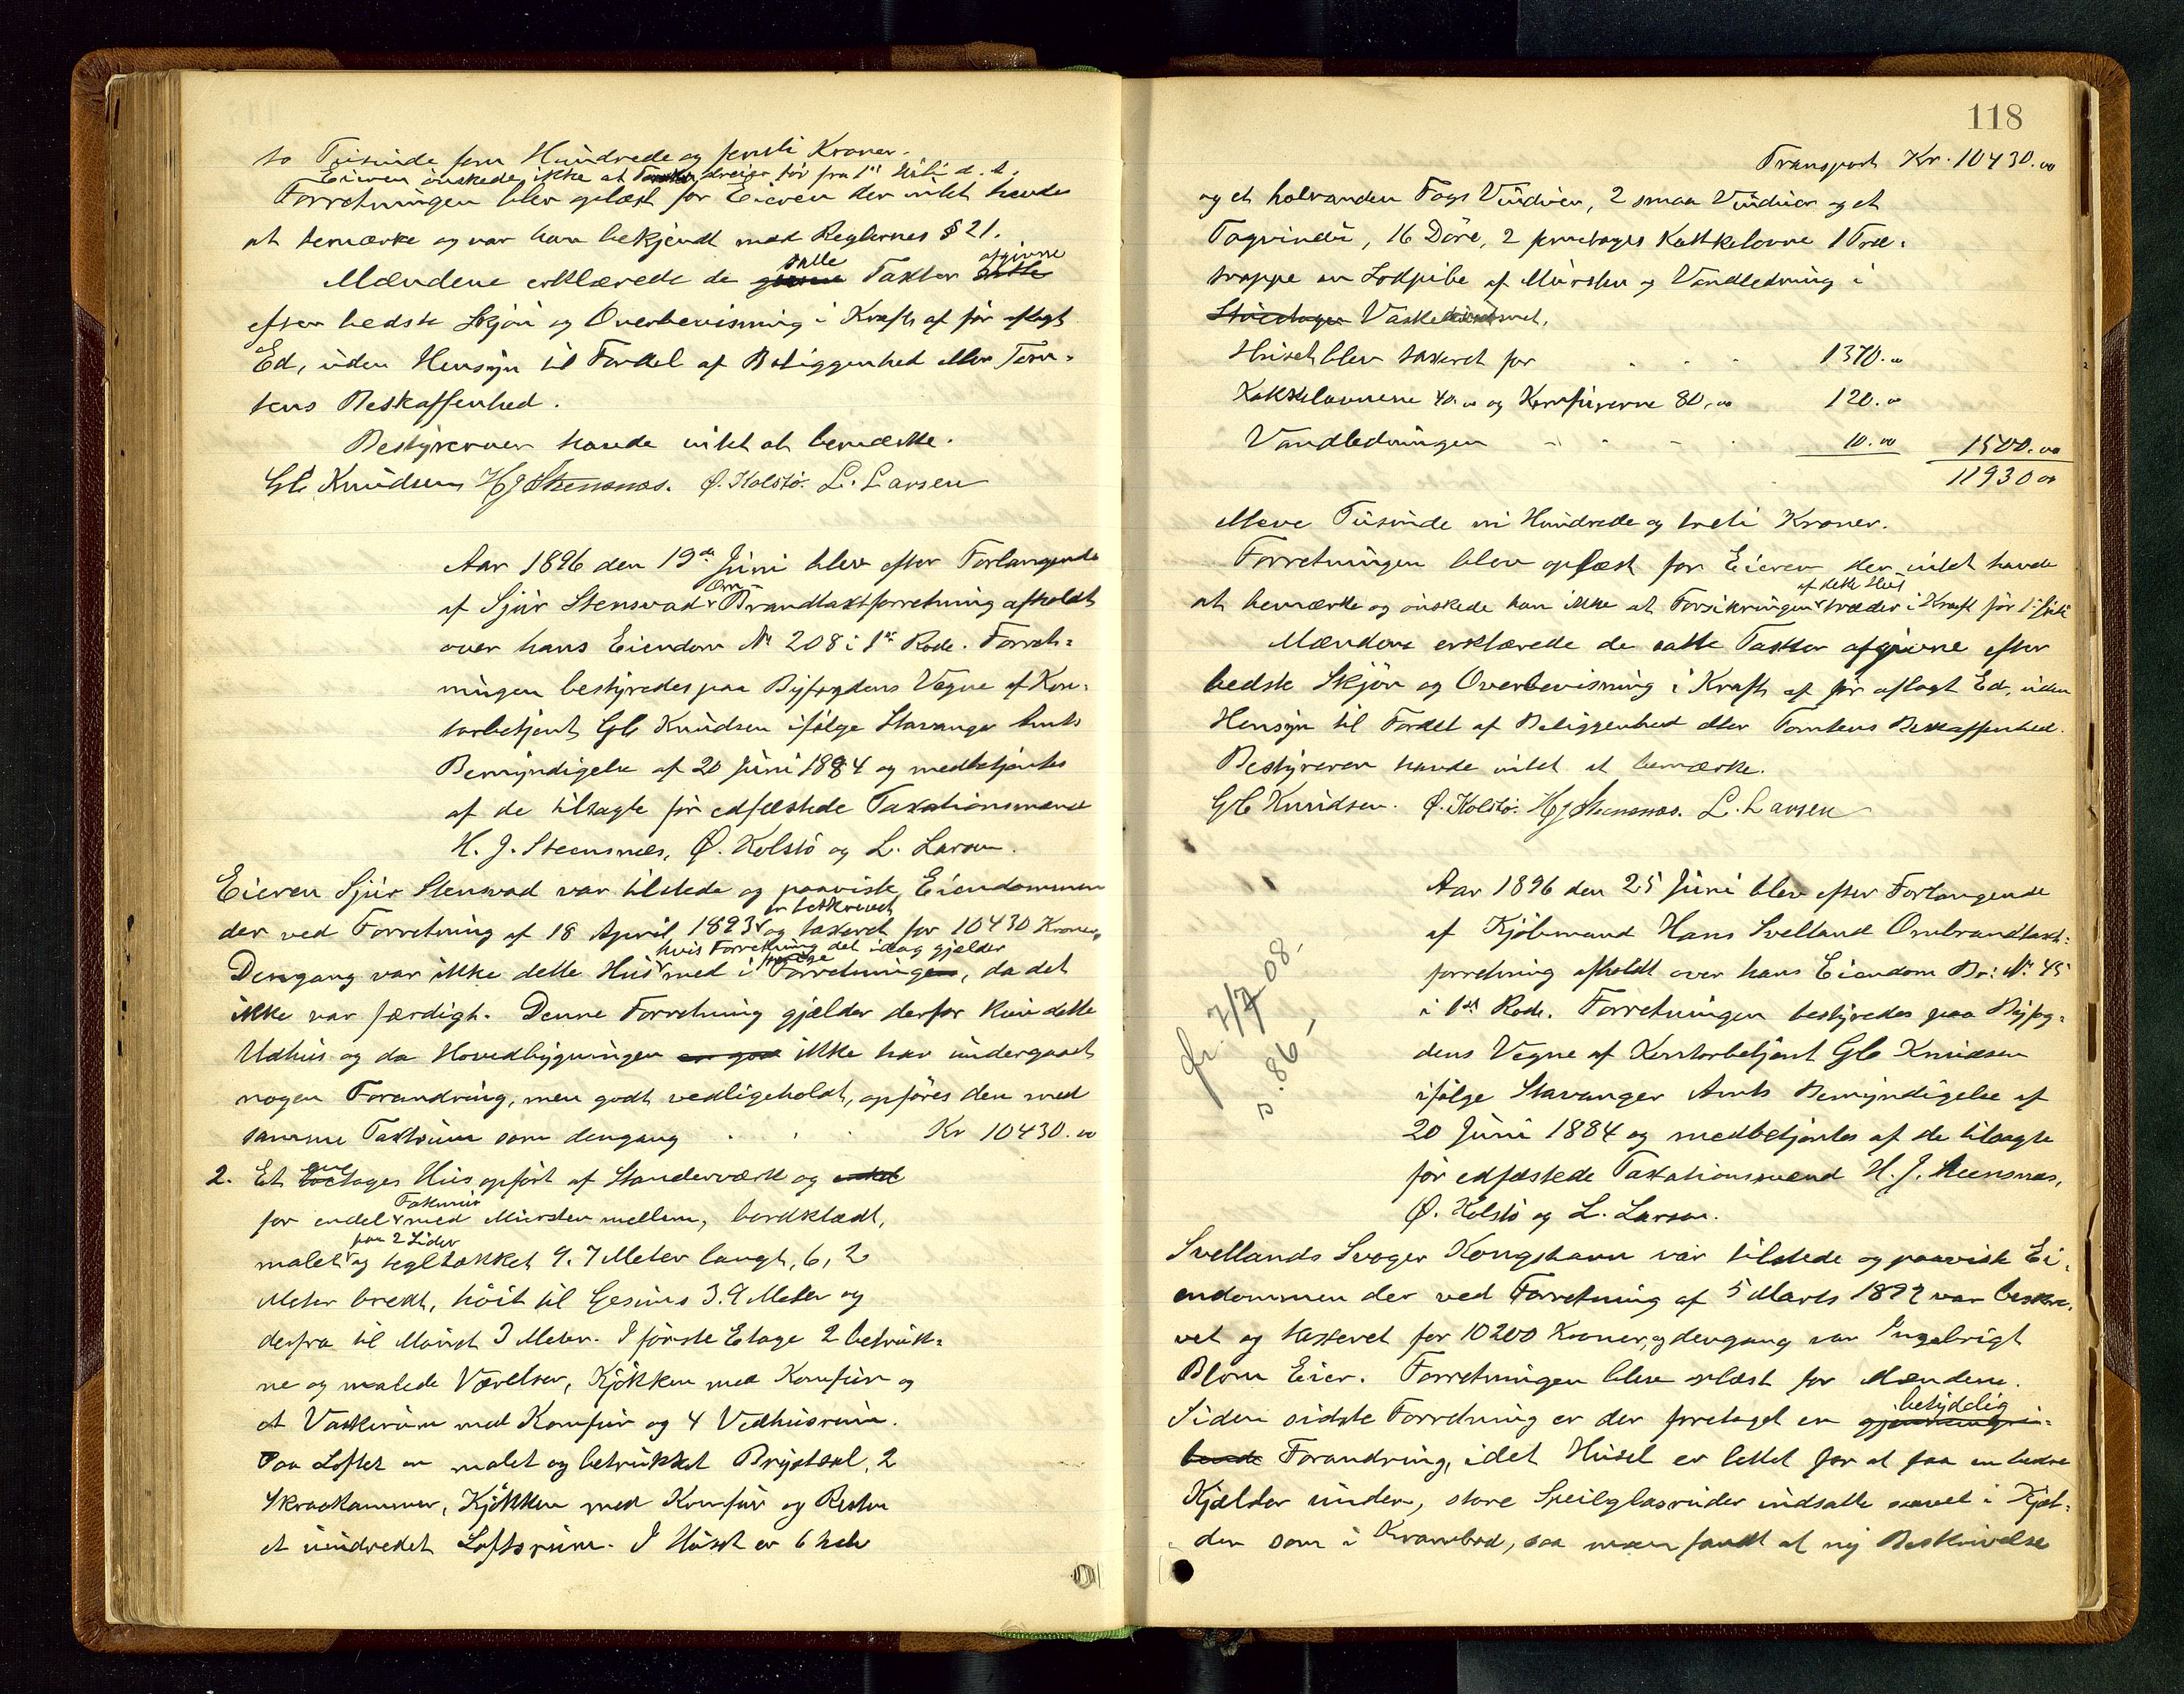 to Tusinde fem Hundrede og femti Kroner.
Eieren ønskede ikke at træder før fra 1st Juli d. A.
Forretningen blev oplæst for Eieren der intet havde
at bemærke og var han bekjendt med Reglernes § 21.
Mændene erklærede de givne satte Taxter satte afgivne
efter bedste Skjøn og Overbevisning i Kraft af før aflagt
Ed, uden Hensyn til Fordel af Beliggenhed eller Tom-
tens Beskaffenhed.
Bestyreren havde intet at bemærke.
Gb Knudsen HJ Steensnæs. Ø. Kolstø. L. Larsen
Aar 1896 den 19de Juni blev efter Forlangende
af Sjur Stensvad Om-Brandtaxtforretning afholdt
over hans Eiendom No 208 i 1st Rode. Forret-
ningen bestyredes paa Byfogdens Vegne af Kon-
torbetjent Gb Knudsen ifølge Stavanger Amts
Bemyndigelse af 20 Juni 1884 og medbetjentes
af de tilsagte før edfæstede Taxationsmænd
H. J. Steensnæs, Ø. Kolstø og L. Larsen.
Eieren Sjur Stensvad var tilstede og paaviste Eiendommen
der ved Forretning af 18 April 1893 er beskrevet og taxeret for 10430 Kroner,
Dengang var ikke dette Hus hvis Forretning det idag gjælder med i forrige Forretningen, da det
ikke var færdigt. Denne Forretning gjælder derfor kun dette
Udhus og da Hovedbygningen er god ikke har undergaaet
nogen Forandring, men godt vedligeholdt, opføres den med
samme Taxtsum som dengang . . . Kr 10430.00
2. Et toetages eneetages Hus opført af Standerværk og endel
for endel Fakmur med Mursten mellem, bordklædt,
malet paa 2 Sider og tegltækket 9.7 Meter langt, 6,2
Meter bredt, høit til Gesims 3.9 Meter og
derfra til Mønet 3 Meter. I første Etage 2 betruk-
ne og malede Værelser, Kjøkken med Komfur og
et Vaskerum med Komfur og 4 Vedhusrum.
Paa Loftet er malet og betrukket Brystsal, 2
Skraakammer, Kjøkken med Komfur og Resten
et uindredet Loftsrum. I Huset er 6 hele
118
Transport Kr. 10430.00
og et halvanden Fags Vinduer, 2 smaa Vinduer og et
Tagvindu, 16 Døre, 2 fireetages Kakkelovne 1 Træ-
trappe en Lodpibe af Mursten og Vandledning i
Vaskerummet,
Huset blev taxeret for . . . 1370.00
Kakkelovnene 40.00 og Komfurerne 80,00 120.00
Vandledningen - - - . 10.00 1500.00
11930 00
Elleve Tusinde ni Hundrede og treti Kroner.
Forretningen blev oplæst for Eieren der intet havde
at bemærke og ønskede han ikke at Forsikringen af dette Hus træder i Kraft før 1st Juli
Mændene erklærede de satte Taxter afgivne efter
bedste Skjøn og Overbevisning i Kraft af før aflagt Ed, uden
Hensyn til Fordel af Beliggenhed eller Tomtens Beskaffenhed.
Bestyreren havde intet at bemærke.
Gb Knudsen. Ø. Kolstø. HJ Steensnæs. L. Larsen
Aar 1896 den 25 Juni blev efter Forlangende
af Kjøbmand Hans Svelland Ombrandtaxt-
forretning afholdt over hans Eiendom Br: No 45
i 1st Rode. Forretningen bestyredes paa Byfog-
dens Vegne af Kontorbetjent Gb Knudsen
ifølge Stavanger Amts Bemyndigelse af
20 Juni 1884 og medbetjentes af de tilsagte
før edfæstede Taxationsmænd H. J. Steensnæs,
Ø. Kolstø og L. Larsen.
7/7-08-
s. 86-
Svellands Svoger Kongshavn var tilstede og paaviste Ei-
endommen der ved Forretning af 5 Marts 1892 var beskre-
vet og taxeret for 10200 Kroner, og dengang var Ingebrigt
Blom Eier. Forretningen blev oplæst for Mændene.
Siden sidste Forretning er der foretaget en gjennemgri- betydelig
bende Forandring, idet Huset er lettet for at faa en bedre
Kjælder under, store Speilglasruder indsatte saavel i Kjæl-
der som i Krambod, saa man fandt at ny Beskrivelse